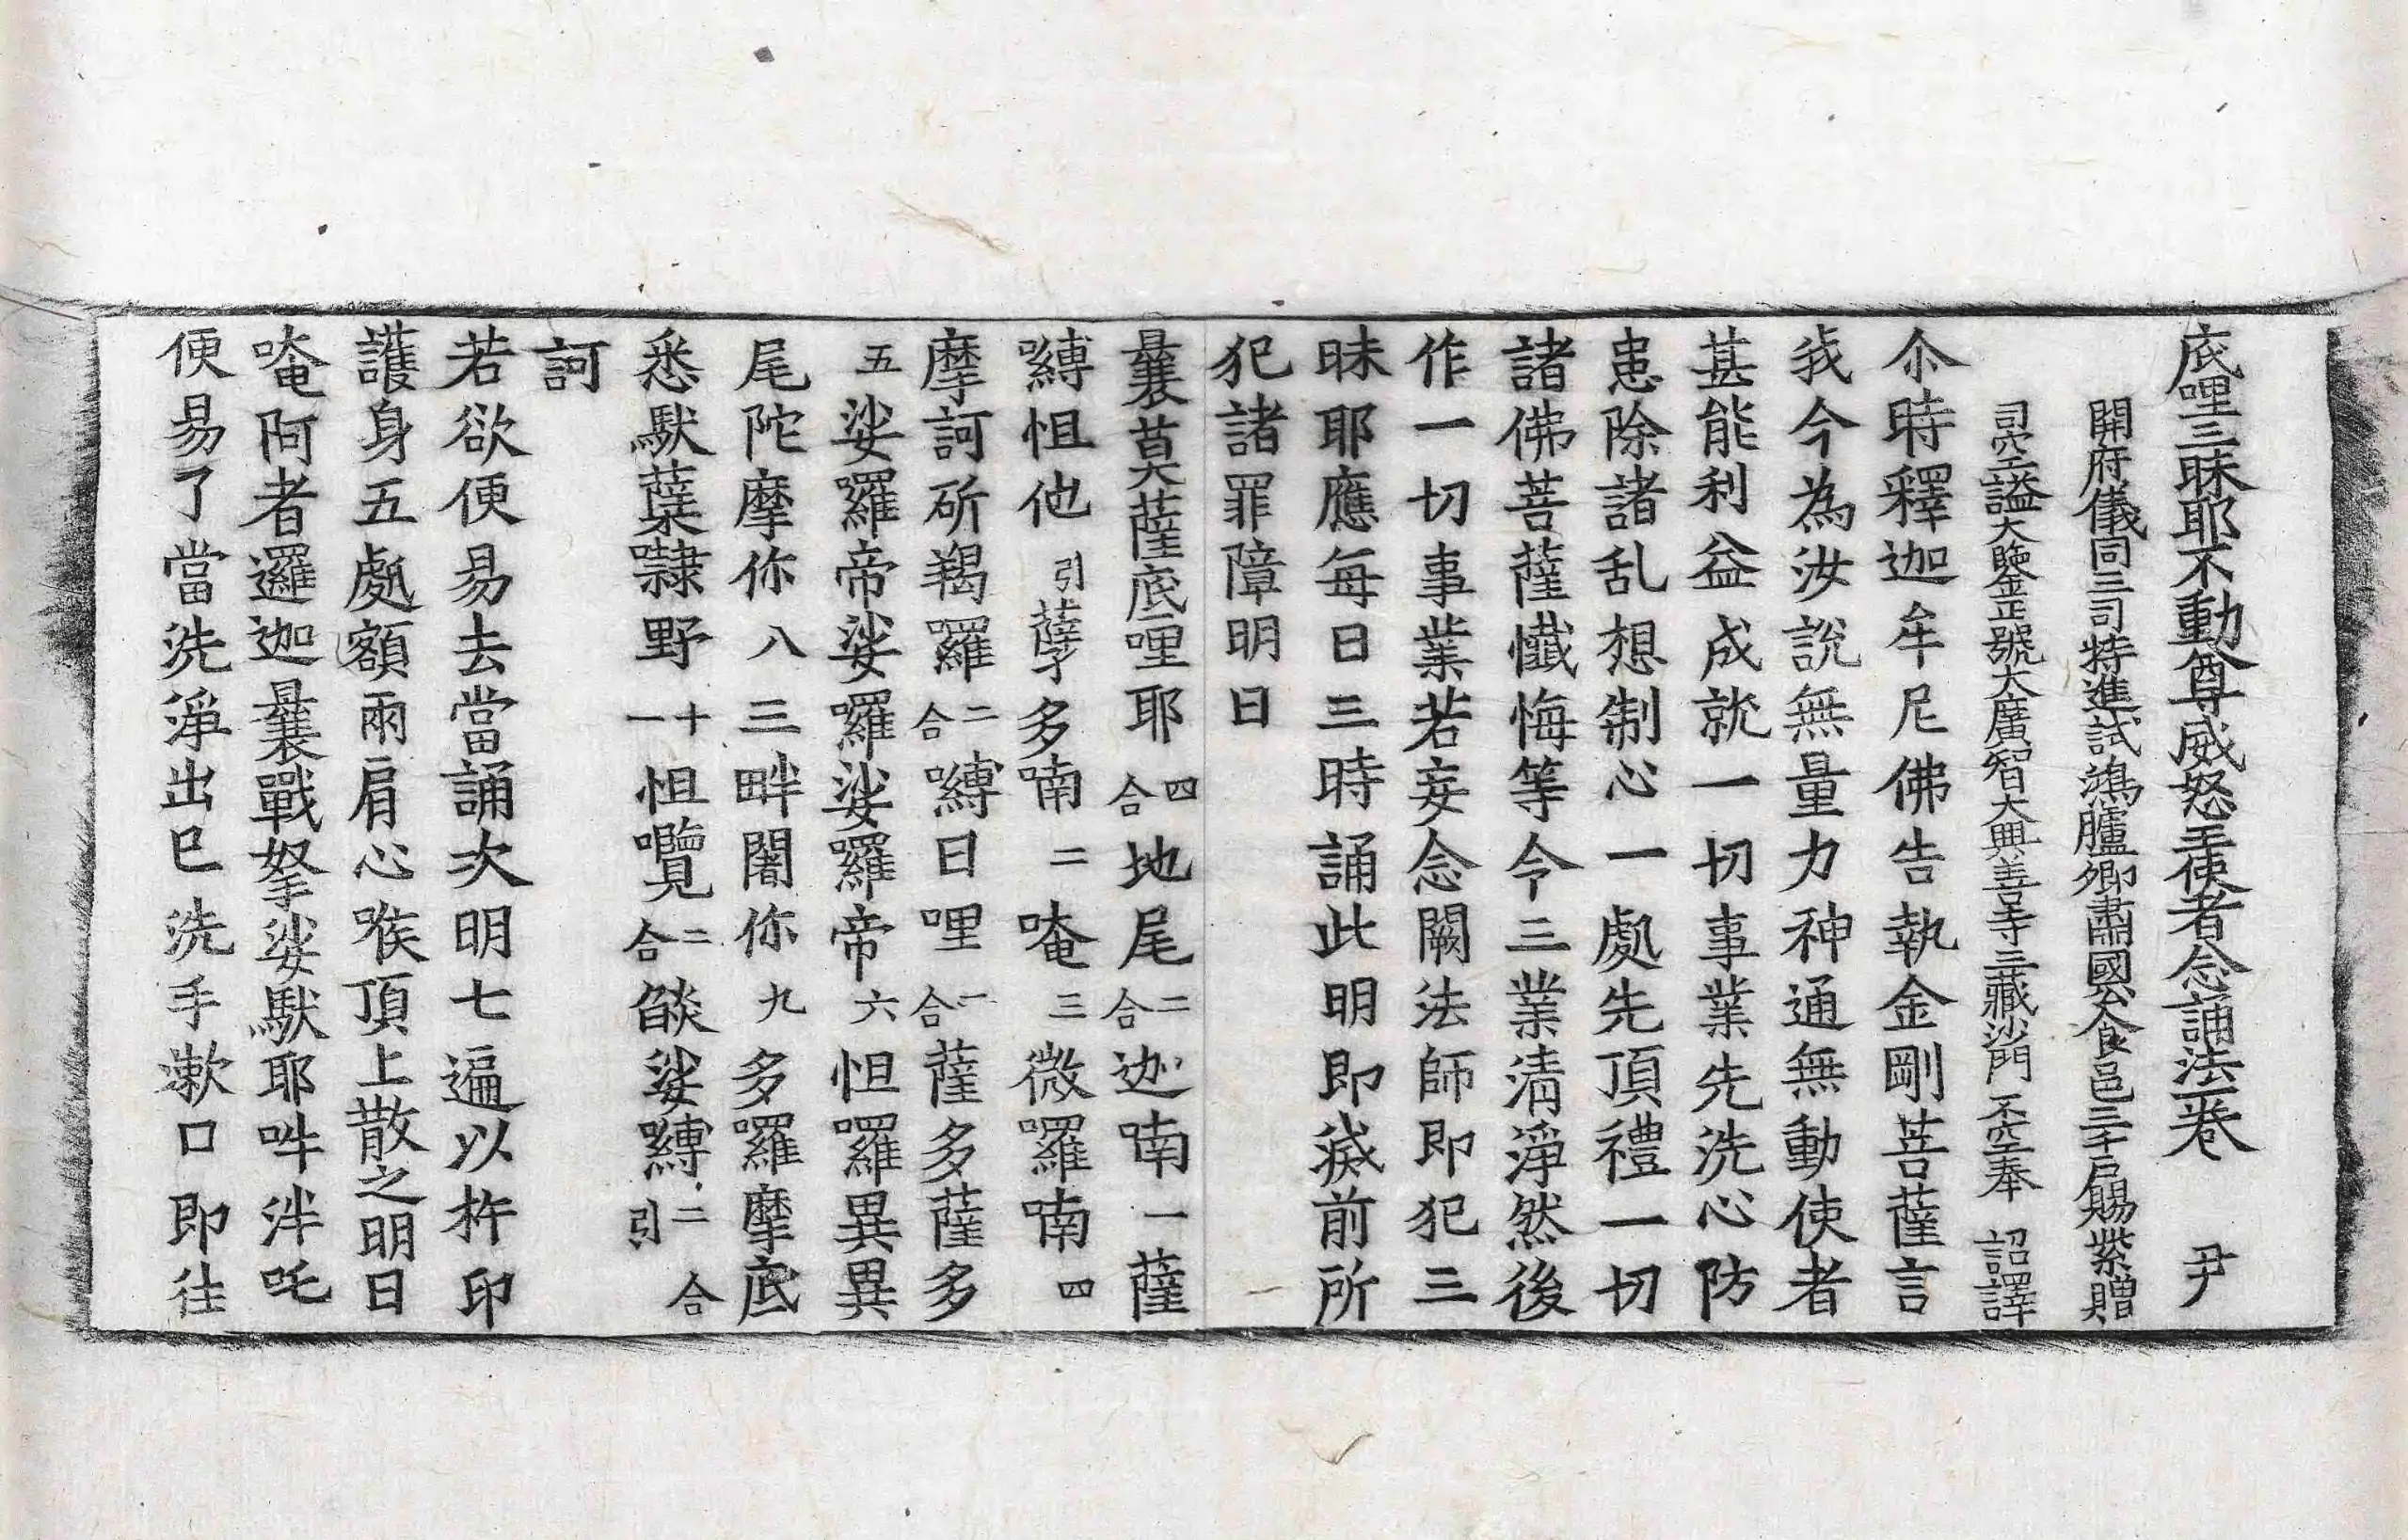 底哩三昧耶不動尊威怒王使者念誦法一卷 尹
開府儀同三司特進試鴻臚卿肅國公食邑三千戶賜紫贈
司空謚大鑒正號大廣智大興善寺三藏沙門 不空奉 詔譯
尒時釋迦牟尼佛告執金剛菩薩言
我今為汝說無量力神通無動使者
甚能利益成就一切事業先洗心防
患除諸乱想制心一處先頂禮一切
諸佛菩薩懺悔等令三業清淨然後
作一切事業若妄念闕法師即犯三
昧耶應每日三時誦此明即滅前所
犯諸罪障明曰
曩莫薩底哩耶四合地尾二合迦喃一薩
嚩怛他引孽多喃二唵三微囉喃四
摩訶斫羯囉二合嚩日哩一合薩多薩多
五娑囉帝娑囉娑囉帝六怛囉異異
尾陀摩你八三畔闍你九多囉摩底
悉馱蘗㘑野十一怛囕二合燄娑嚩二合引
訶
若欲便易去當誦次明七遍以杵印
護身五處額兩肩心喉頂上散之明曰
唵阿者邏迦曩戰拏娑馱耶吽泮吒
便易了當洗淨出已洗手漱口即往